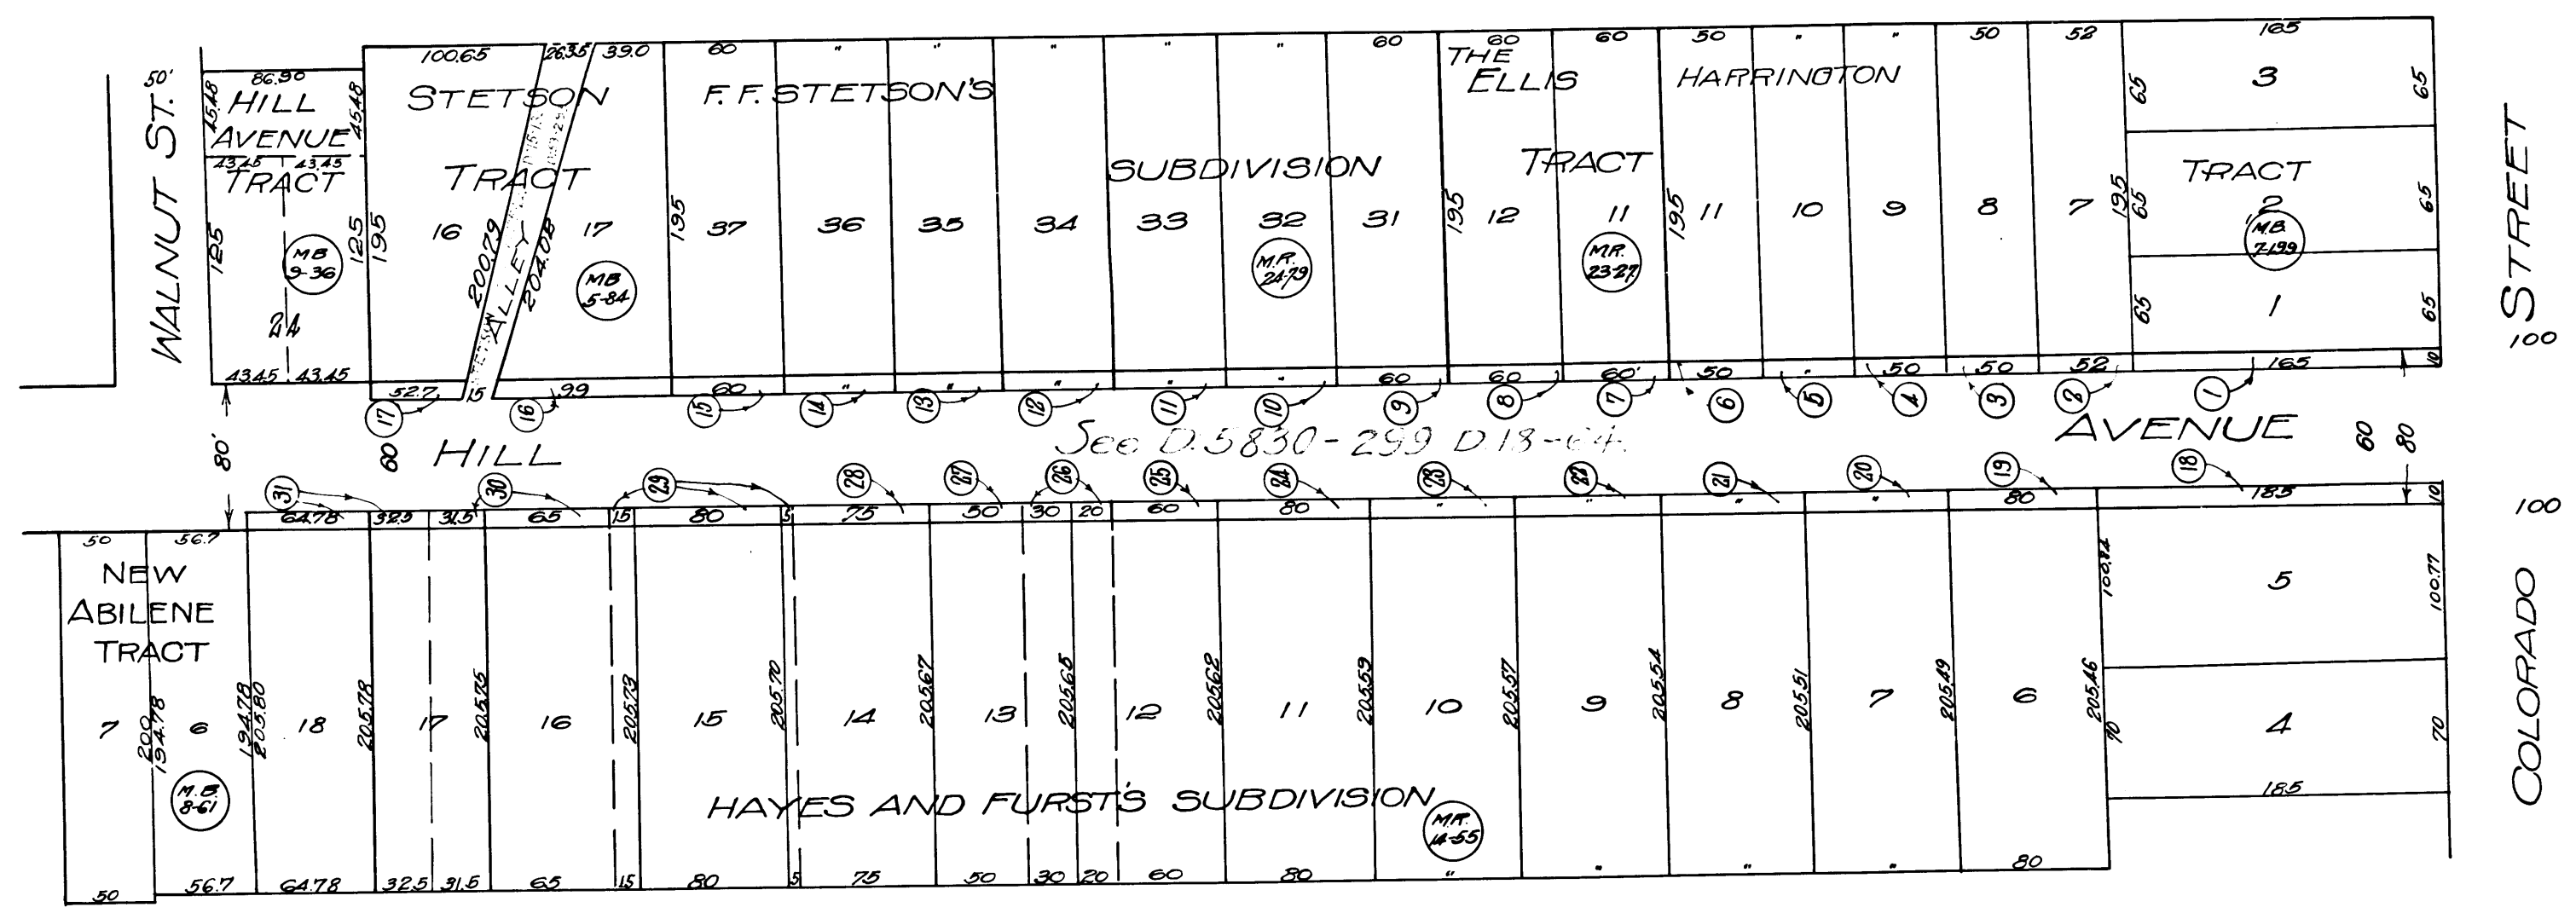 50'
WALNUT ST.
86.90
45.48
HILL
AVENUE
TRACT
45.48
43.45 43.45
125
125
MB
9-36
24
43.45 43.45
100.65
26.35
39.0
STETSON
TRACT
195
16
200.79
ALLEY
204.08
17
MB
5-84
52.7
15
99
60 " " " " " 60
F. F. STETSON'S
SUBDIVISION
195
37 36 35 34 33 32 31
M.R.
24-79
60 " " " " " 60
60 60
THE
ELLIS
TRACT
195
12 11
M.R.
23-27
60 60'
50 " " 50 52 165
HARRINGTON
TRACT
195
11 10 9 8 7
195
65 3 65
65 2 65
M.B.
7-199
65 1 65
50 " 50 50 52 165
10
STREET
100
17 16 15 14 13 12 11 10 9 8 7 6 5 4 3 2 1
80'
60
HILL
See D.5830-299 D.18-64
AVENUE
60
80
31 30 29 28 27 26 25 24 23 22 21 20 19 18
64.78 32.5 31.5 65 15 80 5 75 50 30 20 60 80 " " " " 80 185
10
100
50 56.7
NEW
ABILENE
TRACT
7
200
194.78
6
194.78
205.80
18
205.78
17
205.75
16
205.73
15
205.70
14
205.67
13
205.65
12
205.62
11
205.59
10
205.57
9
205.54
8
205.51
7
205.49
6
205.46
100.84
5
100.77
70
4
70
185
M.B.
8-61
HAYES AND FURST'S SUBDIVISION
M.R.
14-55
50 56.7 64.78 32.5 31.5 65 15 80 5 75 50 30 20 60 80 " " " " 80
COLORADO